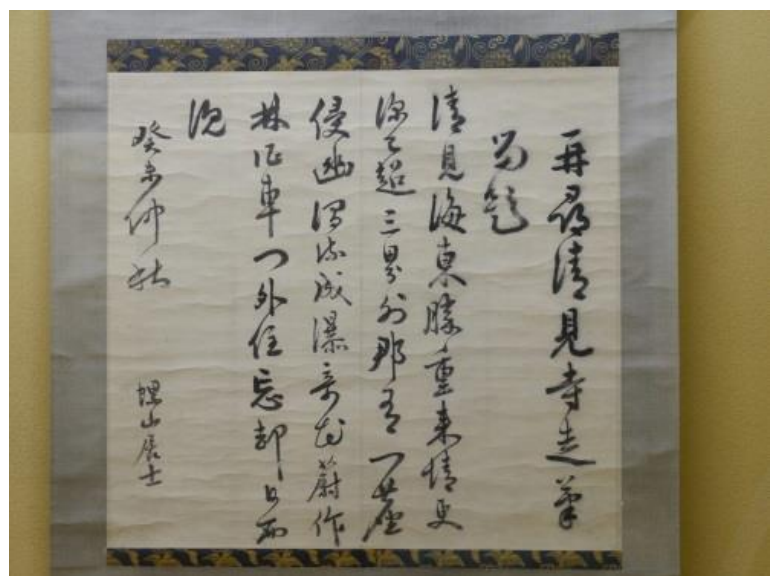 再尋清見寺走筆
留題
清見海東勝重来情更
深心超三界外那有一塵
侵幽澗流成瀑奇花蔚作
林征車門外住忘却日西
沉
癸未仲秋
螺山居士